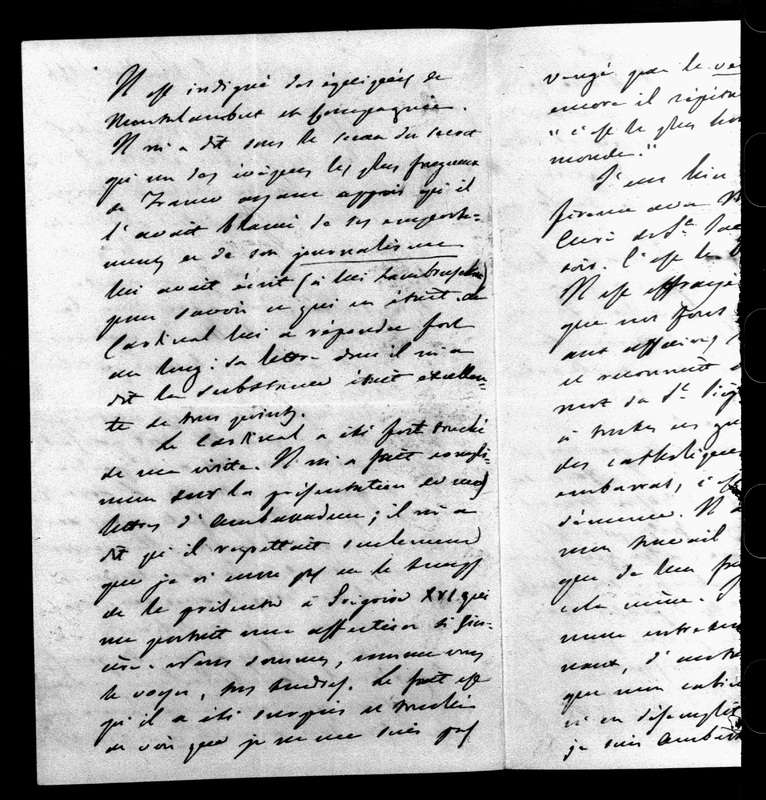 Il est indigné des équipées de
Montalembert et Compagnie.
Il m'a dit sous le sceau du secret
qu'un des évêques les plus fougueux
de France ayant appris qu'il
l'avait blâmé de ses emporte=
ments et de son journalisme
lui avait écrit (à lui Lambruschini)
pour savoir ce qui en était. Le
Cardinal lui a répondu fort
au long: sa lettre dont il m'a
dit la substance était excellen=
te de tous points.
Le Cardinal a été fort touché
de ma visite. Il m'a fait compli=
ment sur la présentation de mes
lettres d'ambassadeur; il m'a
dit qu'il regrettait seulement
que je n'eusse pas eu le temps
de les présenter à Grégoire XVI qui
me portait une affection si sin=
cère. Nous sommes, comme vous
le voyez, très tendres. Le fait est
qu'il a été surpris et touché
de voir que je ne me suis pas
vengé que le
encore il
"c'est le plus
monde."
J'eus hier
férence avec
Curé de St.
soir. C'est le
Il est effrayé
que nos
aux affaires
et reconnait
mort du St. Siège
à toutes ces
des catholiques
embarras, c'
démence. Il
mon travail
que de leur
cela même.
mon
naux, d'autres
que mon
je suis